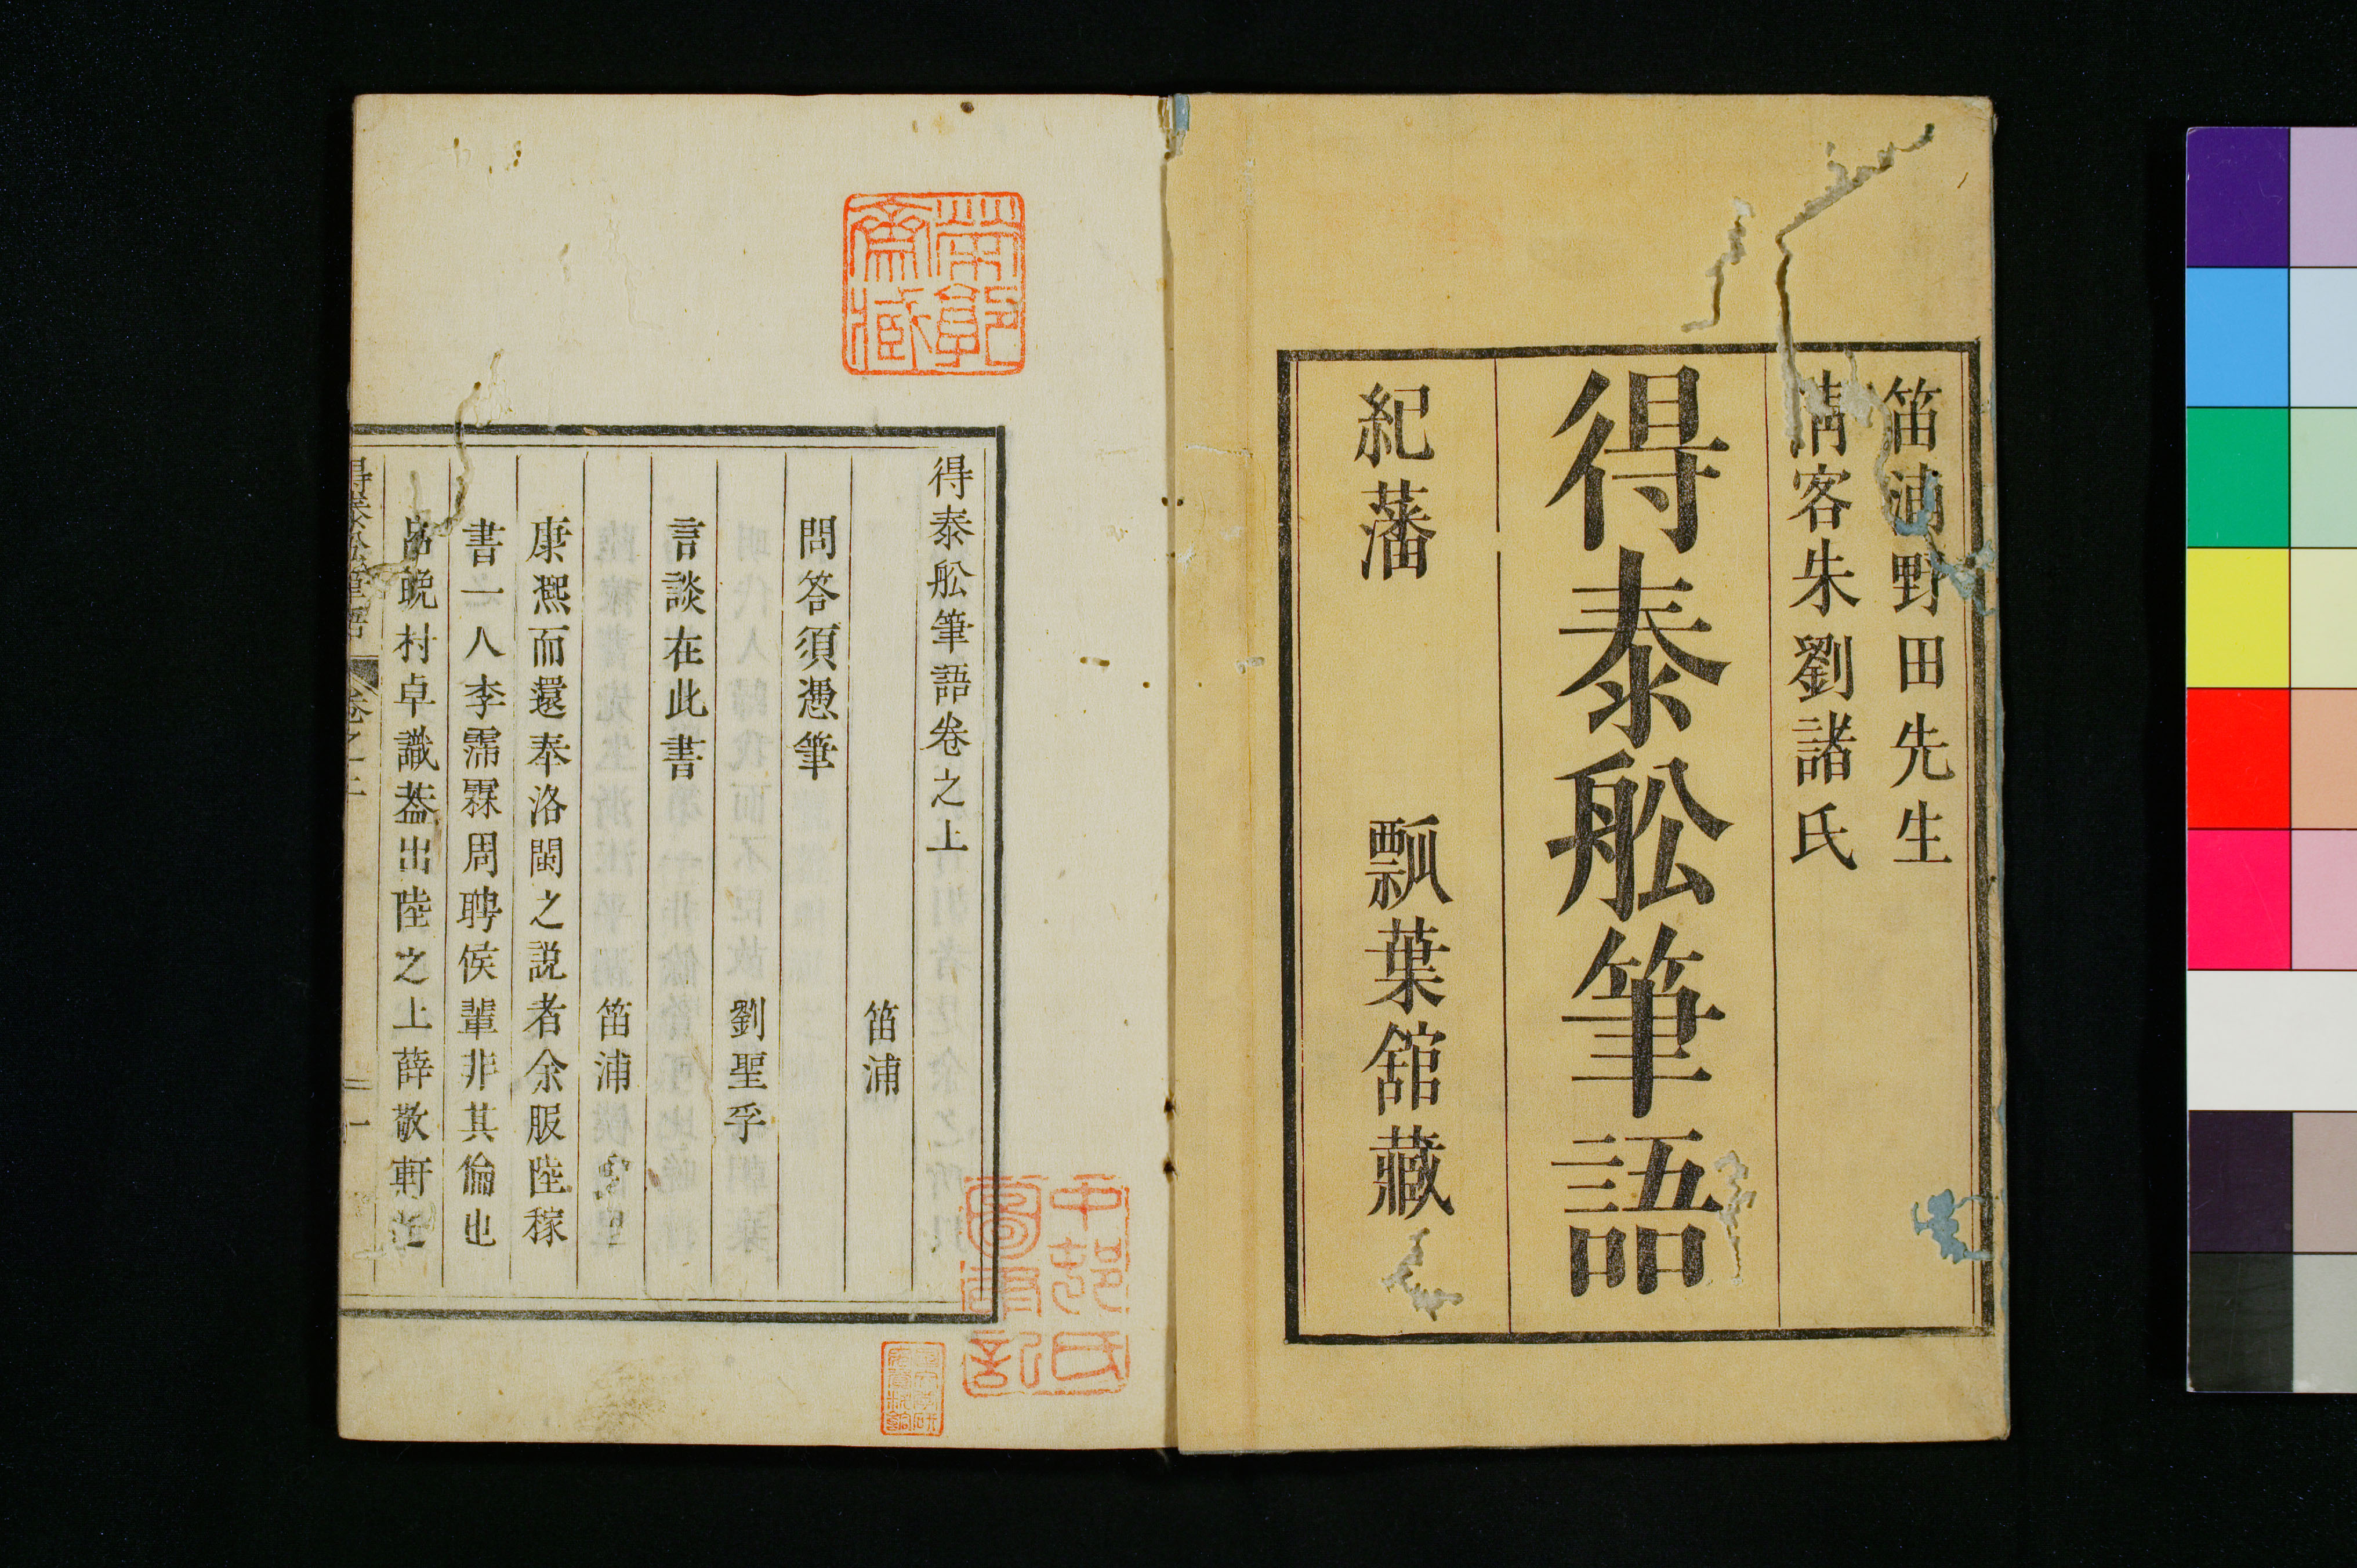 笛浦野田先生
清客朱劉諸氏
得泰舩筆語
紀藩　瓢葉舘藏
得泰舩筆語卷之上
笛浦
問答須憑筆
劉聖孚
言談在此書
笛浦
康熈而還奉洛閩之説者余服陸稼
書一人李霈霖周聘侯輩非其倫也
呂晩村卓識葢出陸之上薛敬軒
得泰舩筆語　卷之上　一
中邨氏圖書記